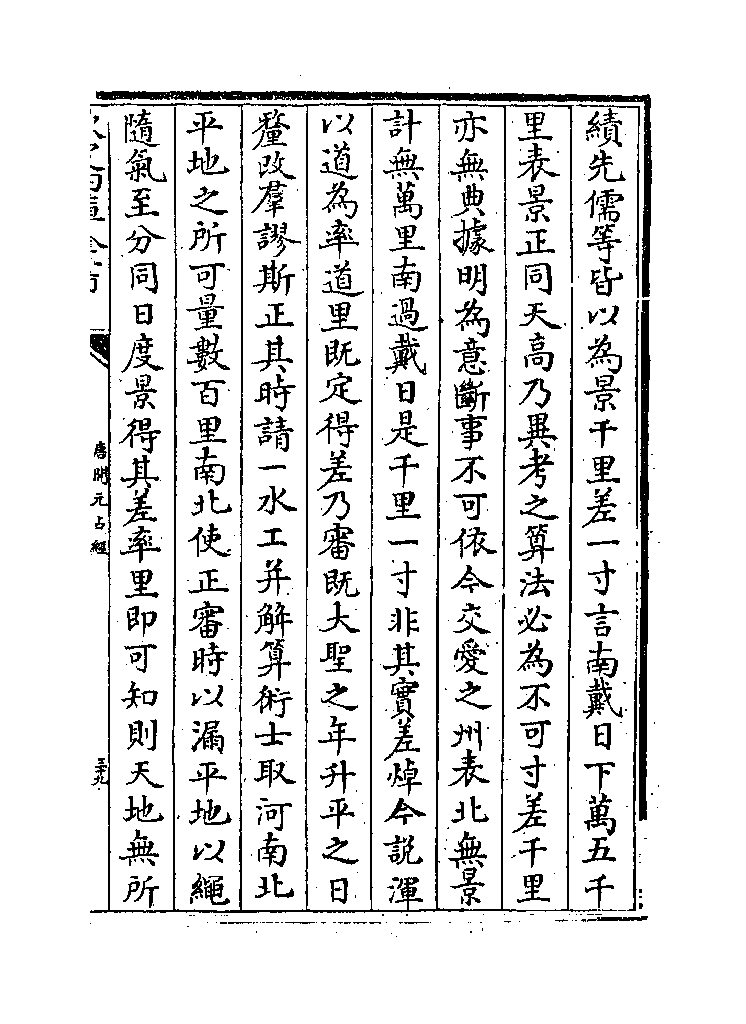 績先儒等皆以為景千里差一寸言南戴日下萬五千
里表景正同天高乃異考之算法必為不可寸差千里
亦無典據明為意斷事不可依今交愛之州表北無景
計無萬里南過戴日是千里一寸非其實差焯今説渾
以道為率道里既定得差乃審既大聖之年升平之日
釐改羣謬斯正其時請一水工并解算術士取河南北
平地之所可量數百里南北使正審時以漏平地以繩
隨氣至分同日度景得其差率里即可知則天地無所
唐開元占經